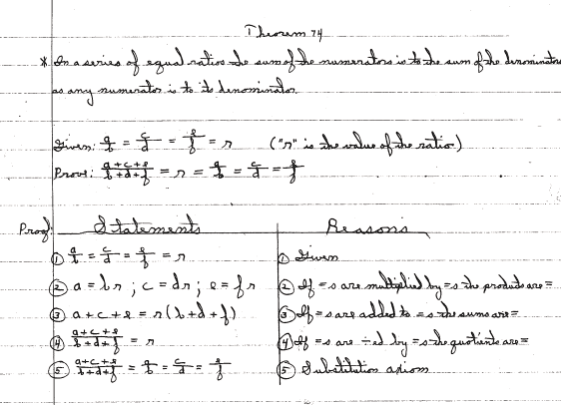 Theorem 74
* In a series of equal ratios the sum of the numerators is to the sum of the denominators
as any numerator is to its denominator.
Given: a/b = c/d = e/f = r ("r" is the value of the ratio)
Prove: a+c+e/b+d+f = r = a/b = c/d = e/f
Proof Statements Reasons
① a/b = c/d = e/f = r ① Given
② a = br ; c = dr ; e = fr ② If =s are multiplied by =s the products are =
③ a+c+e = r(b+d+f) ③ If =s are added to =s the sums are =
④ a+c+e/b+d+f = r ④ If =s are ÷ed by =s the quotients are =
⑤ a+c+e/b+d+f = a/b = c/d = e/f ⑤ Substitution axiom